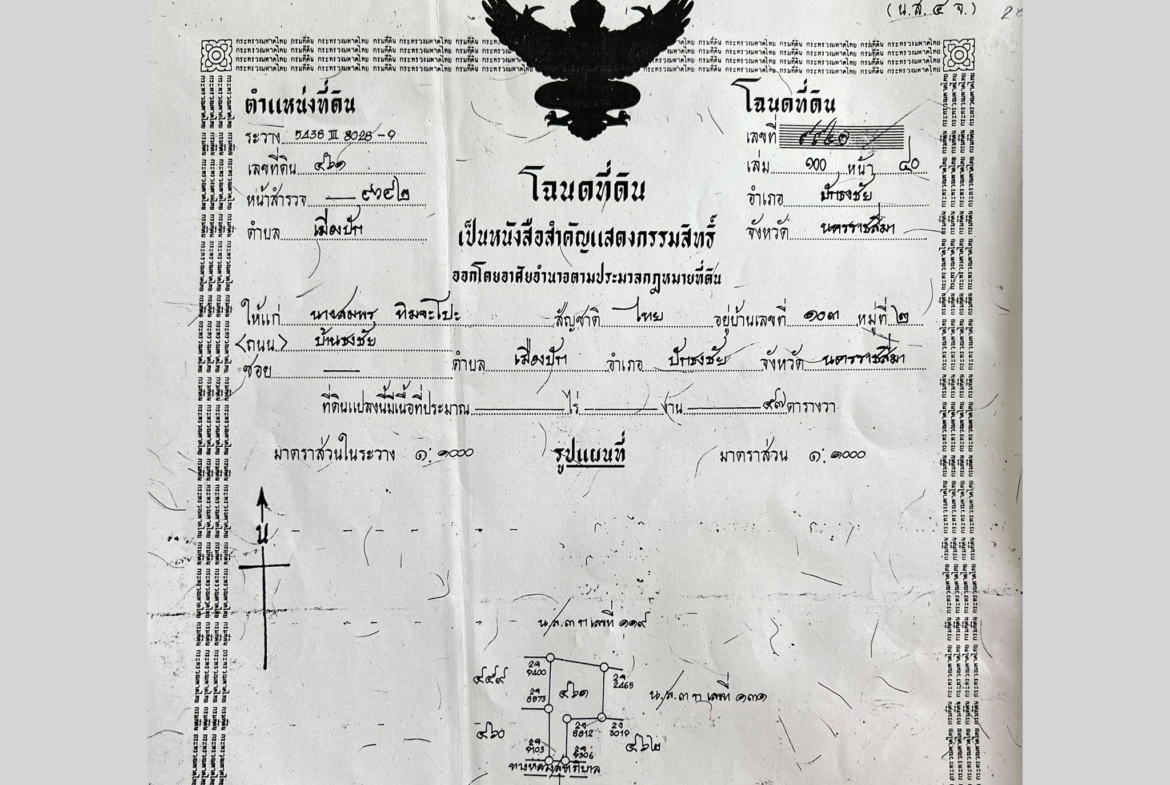 (น.ส.๔ จ.)
กระทรวงมหาดไทย กรมที่ดิน
ตำแหน่งที่ดิน
ระวาง 5438 III 8028-9
เลขที่ดิน ๔๖๑
หน้าสำรวจ ๙๖๙๒
ตำบล เมืองปัก
โฉนดที่ดิน
เลขที่
เล่ม ๑๐๐ หน้า ๔๐
อำเภอ ปักธงชัย
จังหวัด นครราชสีมา
โฉนดที่ดิน
เป็นหนังสือสำคัญแสดงกรรมสิทธิ์
ออกโดยอาศัยอำนาจตามประมวลกฎหมายที่ดิน
ให้แก่ นางสมพร ทิมจะโปะ สัญชาติ ไทย อยู่บ้านเลขที่ ๑๐๓ หมู่ที่ ๒
<ถนน> บ้านธงชัย
ซอย ตำบล เมืองปัก อำเภอ ปักธงชัย จังหวัด นครราชสีมา
ที่ดินแปลงนี้มีเนื้อที่ประมาณ ไร่ งาน ๙๗ ตารางวา
มาตราส่วนในระวาง ๑:๑๐๐๐ รูปแผนที่ มาตราส่วน ๑:๑๐๐๐
น
น.ส.๓ ก เลขที่ ๑๑๙
๔๕๙ 2จ 9400 ๔๖๑ 2จ 2465 น.ส.๓ ก เลขที่ ๑๓๑
2จ 8873
๔๖๐ 2จ 8812 2จ 3019 ๔๖๒
2จ 9103 2จ 9306
ทางหลวงเทศบาล